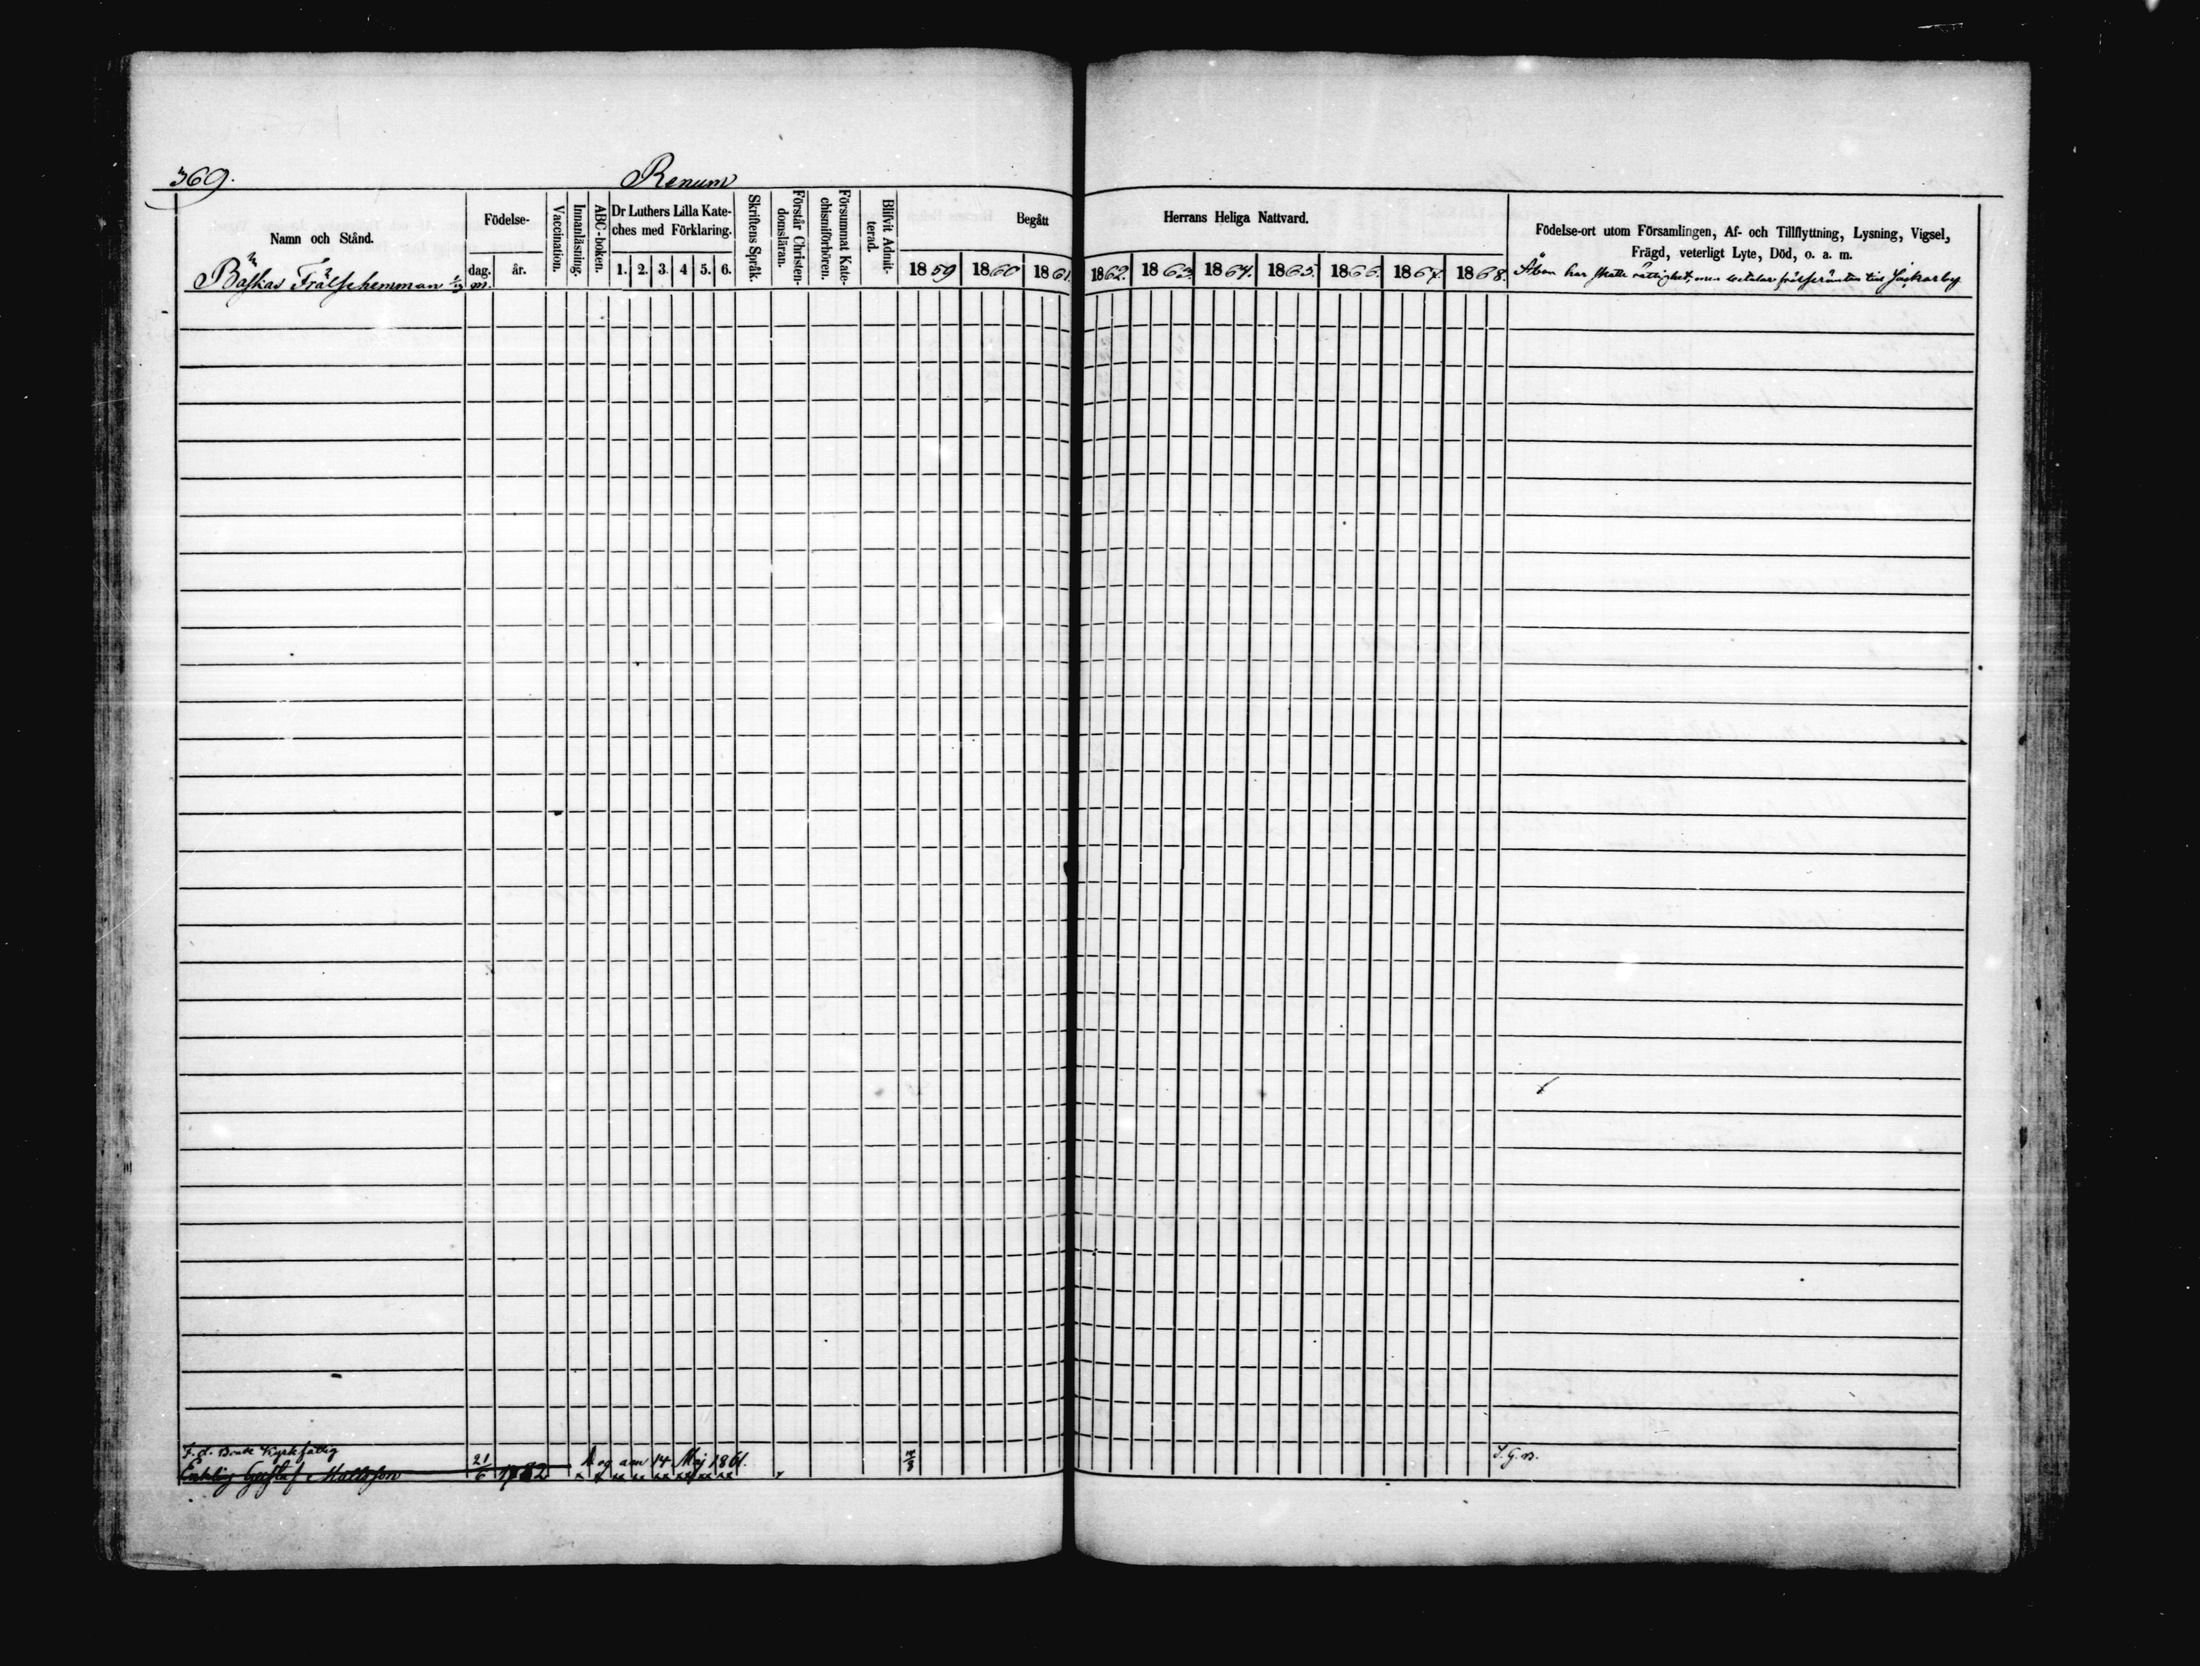 369.
Renum
Namn och Stånd.
Födelse-
dag. år.
m.
Vaccination.
Innanläsning.
ABC-boken.
Dr Luthers Lilla Kate-
ches med Förklaring.
1. 2. 3. 4 5. 6.
Skriftens Språk.
Förstår Christen-
domsläran.
Försummat Kate-
chismiförhören.
Blifvit Admit-
terad.
Begått
1859 1860 1861.
Herrans Heliga Nattvard.
1862. 1863 1864. 1865. 1866. 1867. 1868.
Födelse-ort utom Församlingen, Af- och Tillflyttning, Lysning, Vigsel,
Frägd, veterligt Lyte, Död, o. a. m.
Frälsehemman
Åbon har skatte rättighet, men betalar frälseräntan till
F. d. Kyrkfattig
Enkling Gustaf Mattsson 21/6 1782
Dog den 14 Maj 1861.